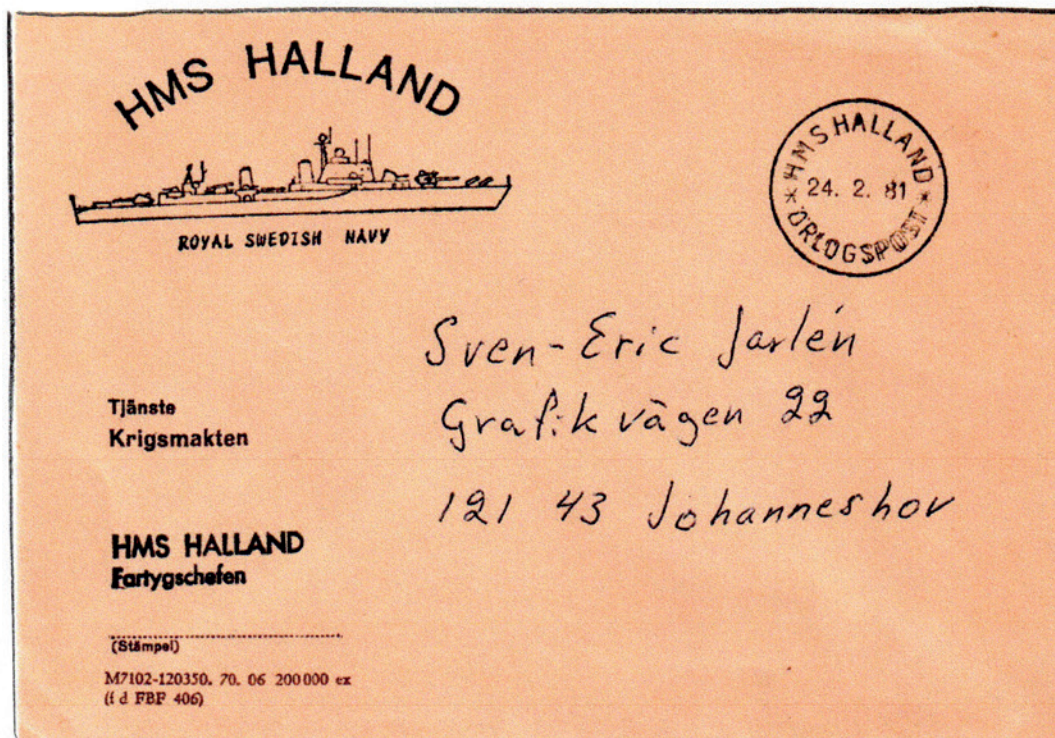 HMS HALLAND
ROYAL SWEDISH NAVY
HMS HALLAND
24. 2. 81
* ÖRLOGSPOST *
Sven-Eric Jarlén
Grafikvägen 22
121 43 Johanneshov
Tjänste
Krigsmakten
HMS HALLAND
Fartygschefen
(Stämpel)
M7102-120350. 70. 06 200000 ex
(f d FBF 406)